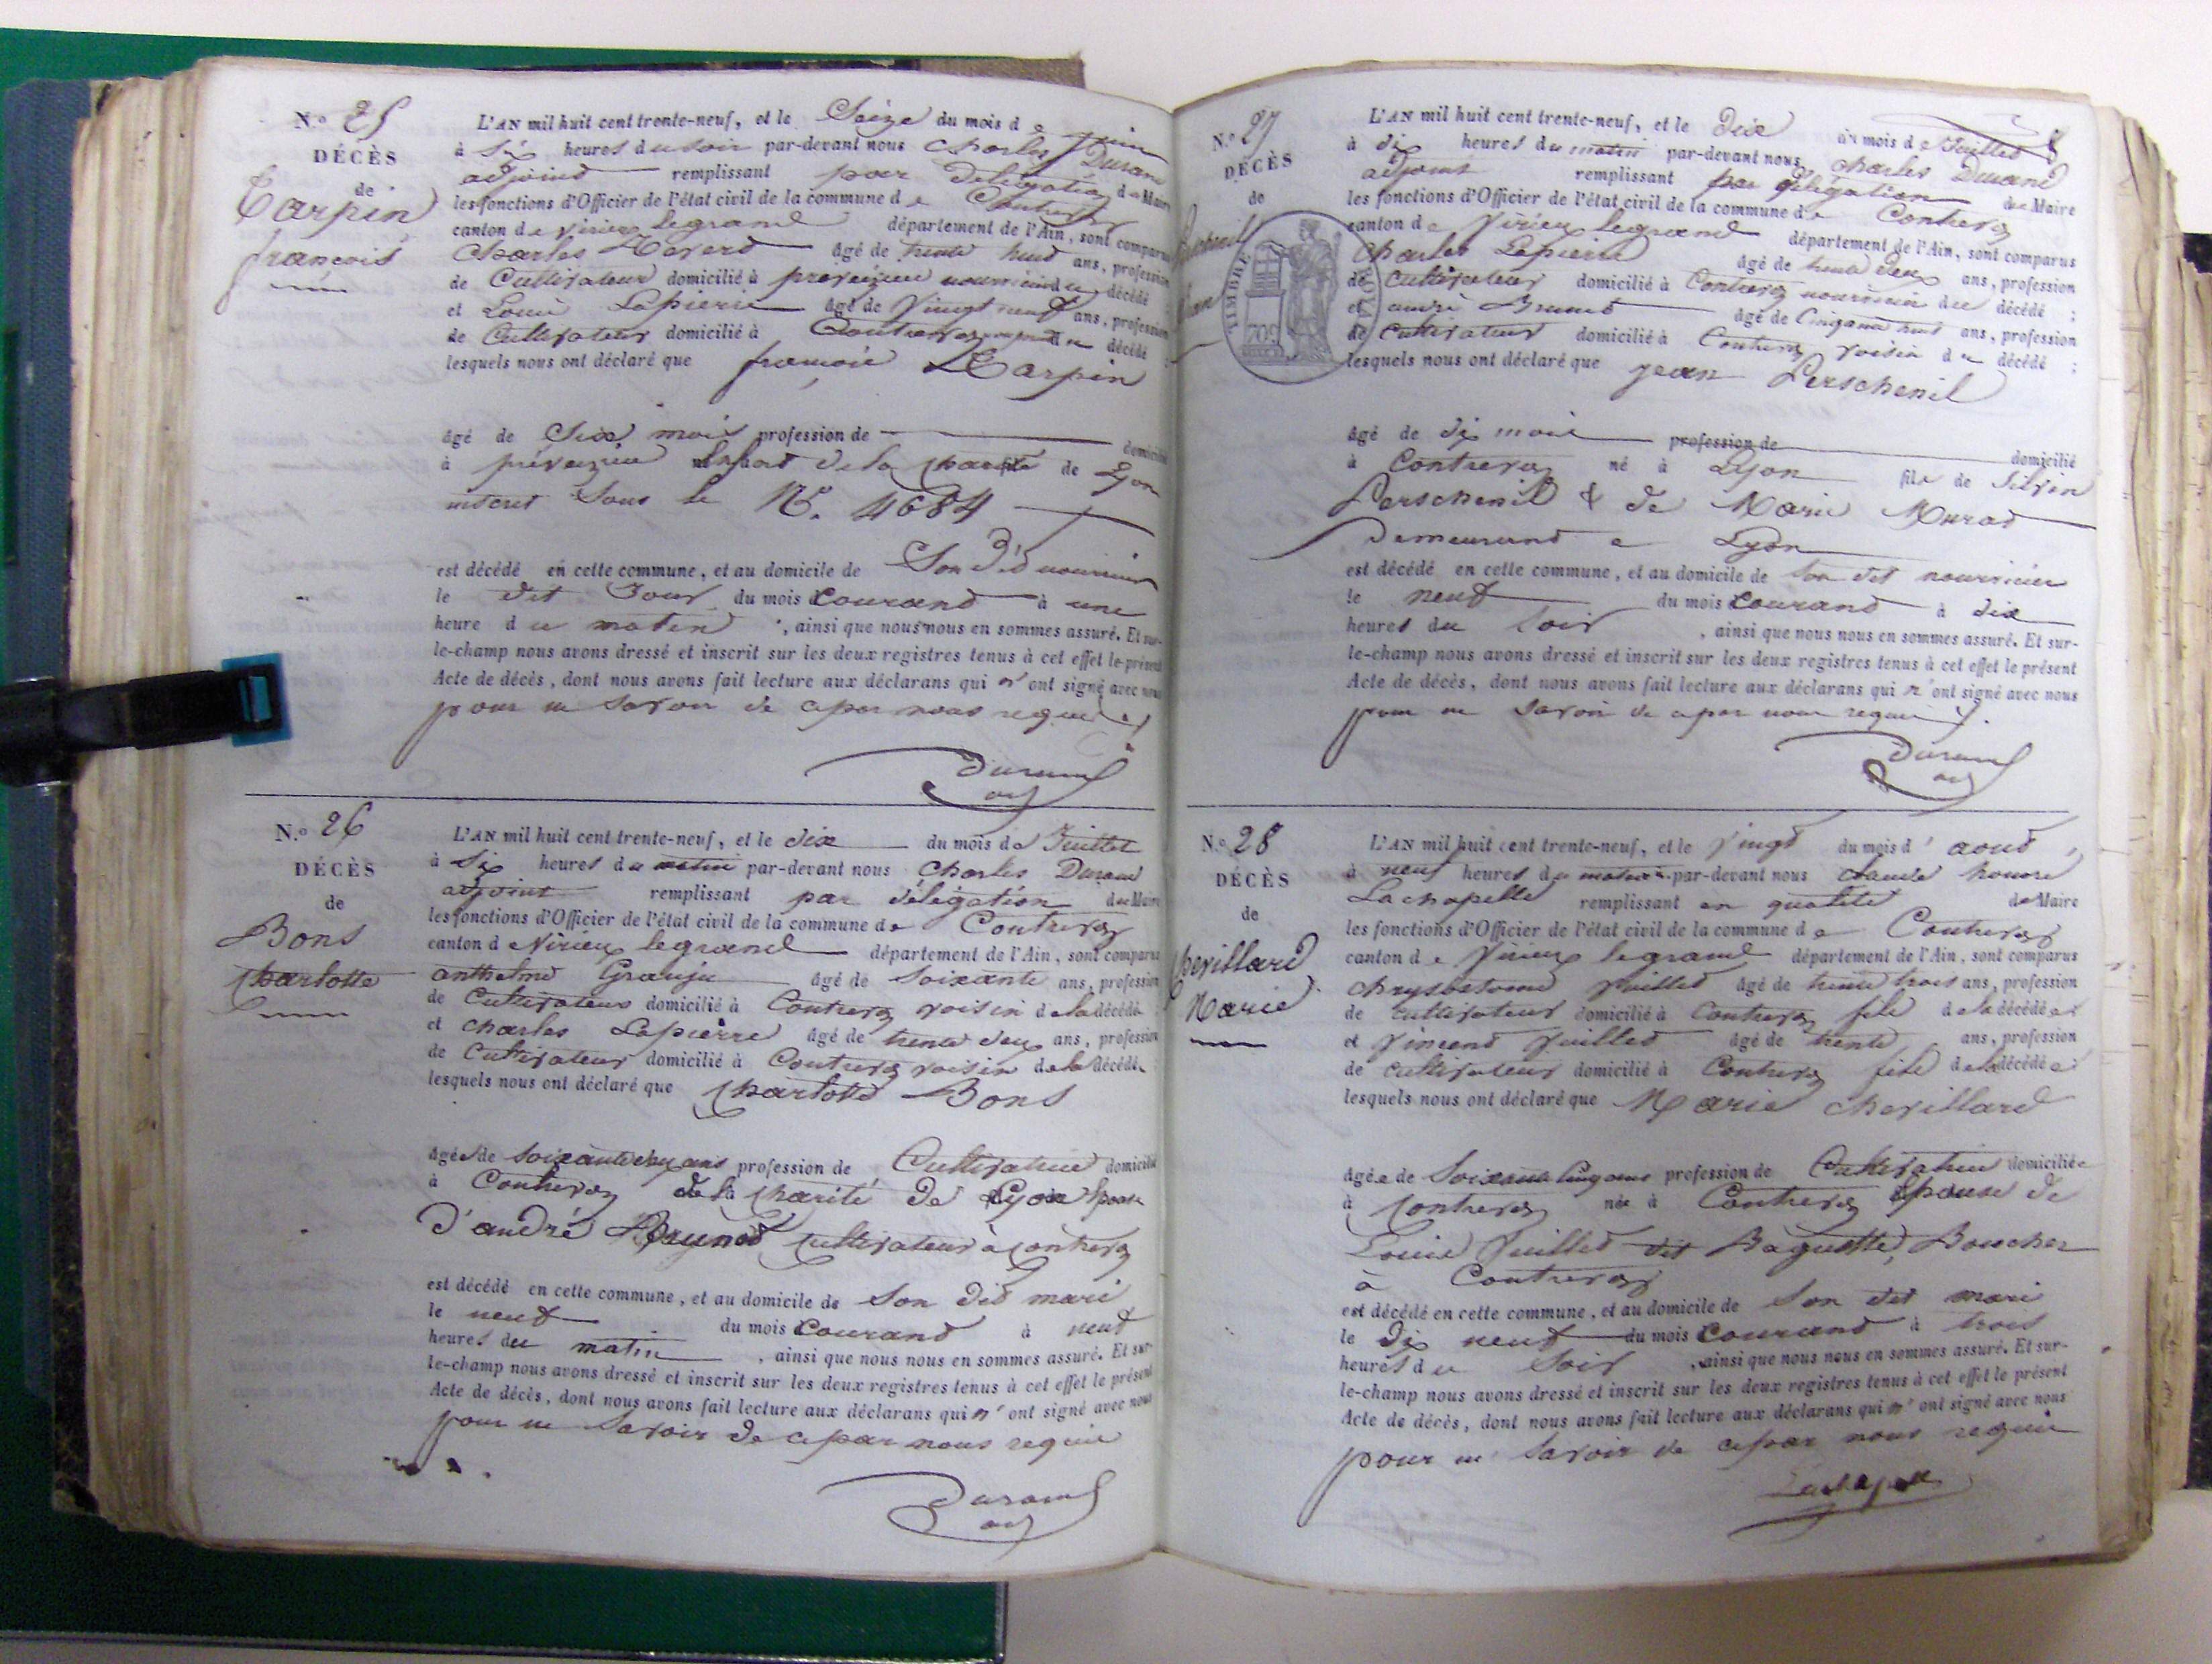 N.º 25
DÉCÈS
de
Carpin
françois
L'AN mil huit cent trente-neuf, et le Seize du mois de Juin
à Six heures du soir par-devant nous Charles Durand
adjoind remplissant par délégation du Maire
les fonctions d'Officier de l'état civil de la commune de Contrevoz
canton de Virieu legrand département de l'Ain, sont comparus
Charles âgé de trente huit ans, profession
de Cultivateur domicilié à preveizieu nourricier du décédé
et Louis Lapierre âgé de Vingt neuf ans, profession
de Cultivateur domicilié à Contrevoz du décédé
lesquels nous ont déclaré que francois Carpin
âgé de Six mois profession de domicilié
à préveizieu Enfant de la charité de Lyon
inscrit Sous le N.º 4684
est décédé en cette commune, et au domicile de Son did nourricier
le dit Jour du mois courand à une
heure du matin, ainsi que nous nous en sommes assuré. Et sur-
le-champ nous avons dressé et inscrit sur les deux registres tenus à cet effet le présent
Acte de décès, dont nous avons fait lecture aux déclarans qui n'ont signé avec nous
pour ne savoir de ce par nous requis
Durand
adj
N.º 26
DÉCÈS
de
Bons
Charlotte
L'AN mil huit cent trente-neuf, et le dix du mois de Juillet
à Six heures du matin par-devant nous Charles Durand
adjoint remplissant par délégation du Maire
les fonctions d'Officier de l'état civil de la commune de Contrevoz
canton de Virieu legrand département de l'Ain, sont comparus
anthelme Granju âgé de Soixante ans, profession
de Cultivateur domicilié à Contrevoz voisin de la décédé
et Charles Lapierre âgé de trente deux ans, profession
de Cultivateur domicilié à Contrevoz voisin de la décédé
lesquels nous ont déclaré que Charlotte Bons
âgée de soixante deux ans profession de Cultivatrice domicilié
à Contrevoz de la charité de Lyon Epouse
d'andré Brunod cultivateur à contrevoz
est décédé en cette commune, et au domicile de Son did mari
le neuf du mois courand à neuf
heures du matin, ainsi que nous nous en sommes assuré. Et sur-
le-champ nous avons dressé et inscrit sur les deux registres tenus à cet effet le présent
Acte de décès, dont nous avons fait lecture aux déclarans qui n'ont signé avec nous
pour ne savoir de ce par nous requis
Durand
adj
N.º 27
DÉCÈS
de
TIMBRE
L'AN mil huit cent trente-neuf, et le dix du mois de Juillet
à six heures du matin par-devant nous Charles Durand
adjoint remplissant par délégation du Maire
les fonctions d'Officier de l'état civil de la commune de Contrevoz
canton de Virieu legrand département de l'Ain, sont comparus
Charles Lapierre âgé de trente deux ans, profession
de cultivateur domicilié à Contrevoz nourricier du décédé ;
et andré Brunod âgé de Cinquante huit ans, profession
de cultivateur domicilié à Contrevoz voisin du décédé ;
lesquels nous ont déclaré que jean Perschenil
âgé de six mois profession de domicilié
à Contrevoz né à Lyon fils de Silvin
Perschenil & de Marie Murat
Demeurand a Lyon
est décédé en cette commune, et au domicile de son dit nourricier
le neuf du mois courand à dix
heures du soir, ainsi que nous nous en sommes assuré. Et sur-
le-champ nous avons dressé et inscrit sur les deux registres tenus à cet effet le présent
Acte de décès, dont nous avons fait lecture aux déclarans qui n'ont signé avec nous
pour ne savoir de ce par nous requis
Durand
adj
N.º 28
DÉCÈS
de
Chevillard
Marie
L'AN mil huit cent trente-neuf, et le vingt du mois d'aoud
à neuf heures du matin par-devant nous Claude honoré
Lachapelle remplissant en qualité de Maire
les fonctions d'Officier de l'état civil de la commune de Contrevoz
canton de Virieu legrand département de l'Ain, sont comparus
Chrysostome Juilled âgé de trente trois ans, profession
de cultivateur domicilié à Contrevoz fils de la décédée
et Vincend Juilled âgé de trente ans, profession
de cultivateur domicilié à Contrevoz fils de la décédée
lesquels nous ont déclaré que Marie chevillard
âgée de Soixante cinq ans profession de Cultivatrice domiciliée
à Contrevoz née à Contrevoz Epouse de
Louis Juilled dit Baguette, Boucher
à Contrevoz
est décédé en cette commune, et au domicile de Son dit mari
le dix neuf du mois courand à trois
heures du soir, ainsi que nous nous en sommes assuré. Et sur-
le-champ nous avons dressé et inscrit sur les deux registres tenus à cet effet le présent
Acte de décès, dont nous avons fait lecture aux déclarans qui n'ont signé avec nous
pour ne savoir de ce par nous requis
Lachapelle